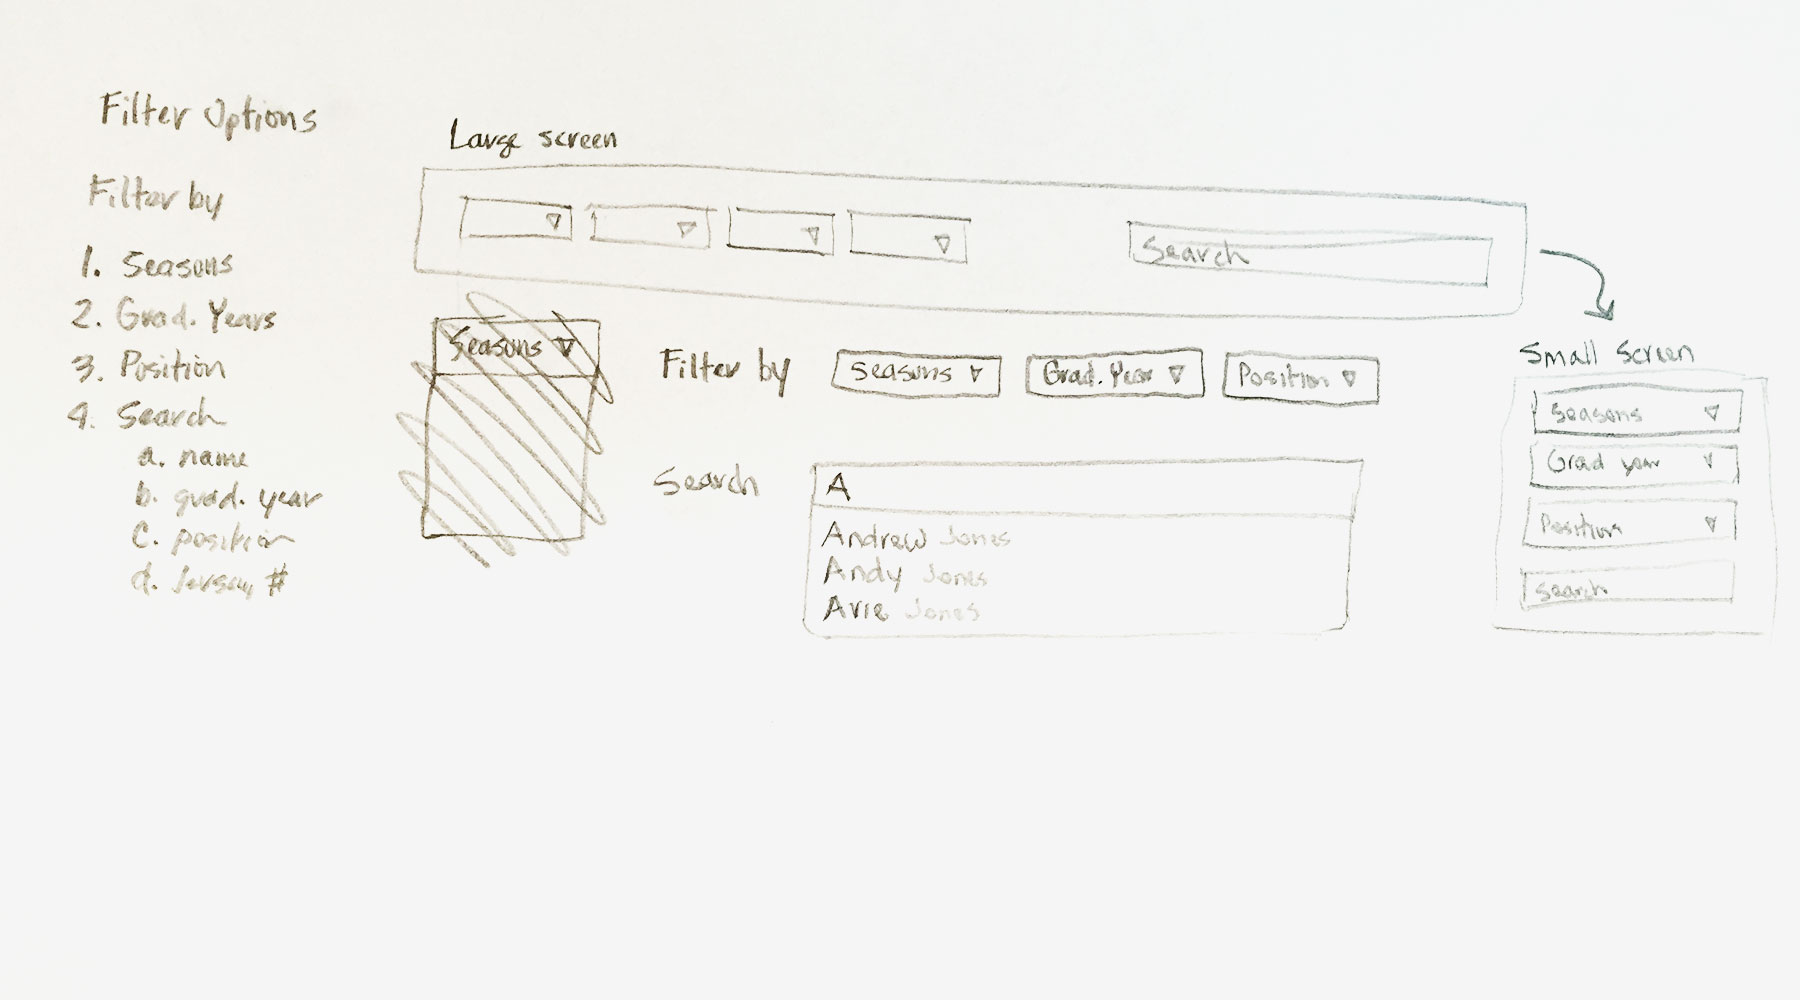 Filter Options
Filter by
1. Seasons
2. Grad. Years
3. Position
4. Search
a. name
b. grad. year
c. position
d. Jersey #
Large screen
Search
Seasons
Filter by
Seasons
Grad. Year
Position
Search
A
Andrew Jones
Andy Jones
Arie Jones
Small Screen
Seasons
Grad year
Position
Search